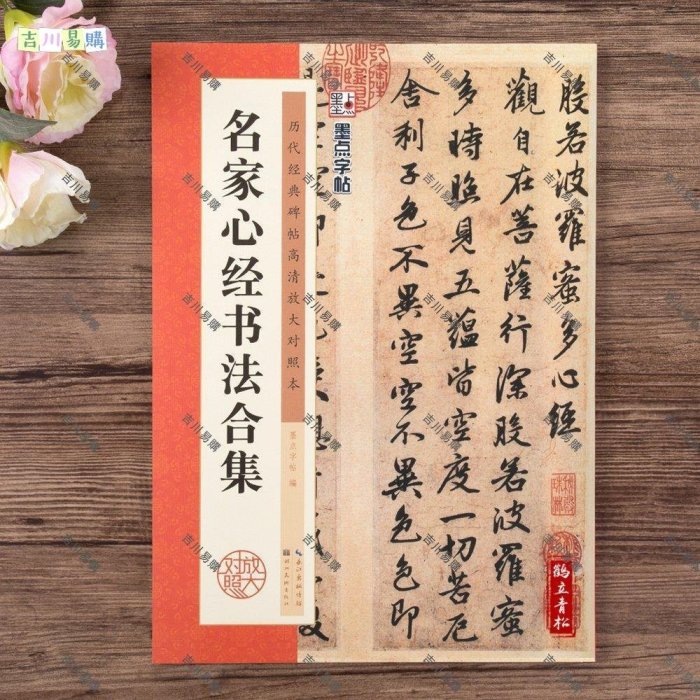 吉川易購
名家心经书法合集
历代经典碑帖高清放大对照本
墨点字帖 编
放大
对照
长江出版传媒
湖北美术出版社
墨点字帖
般若波羅蜜多心經
觀自在菩薩行深般若波羅蜜
多時照見五蘊皆空度一切苦厄
舍利子色不異空空不異色色即
鶴立青松